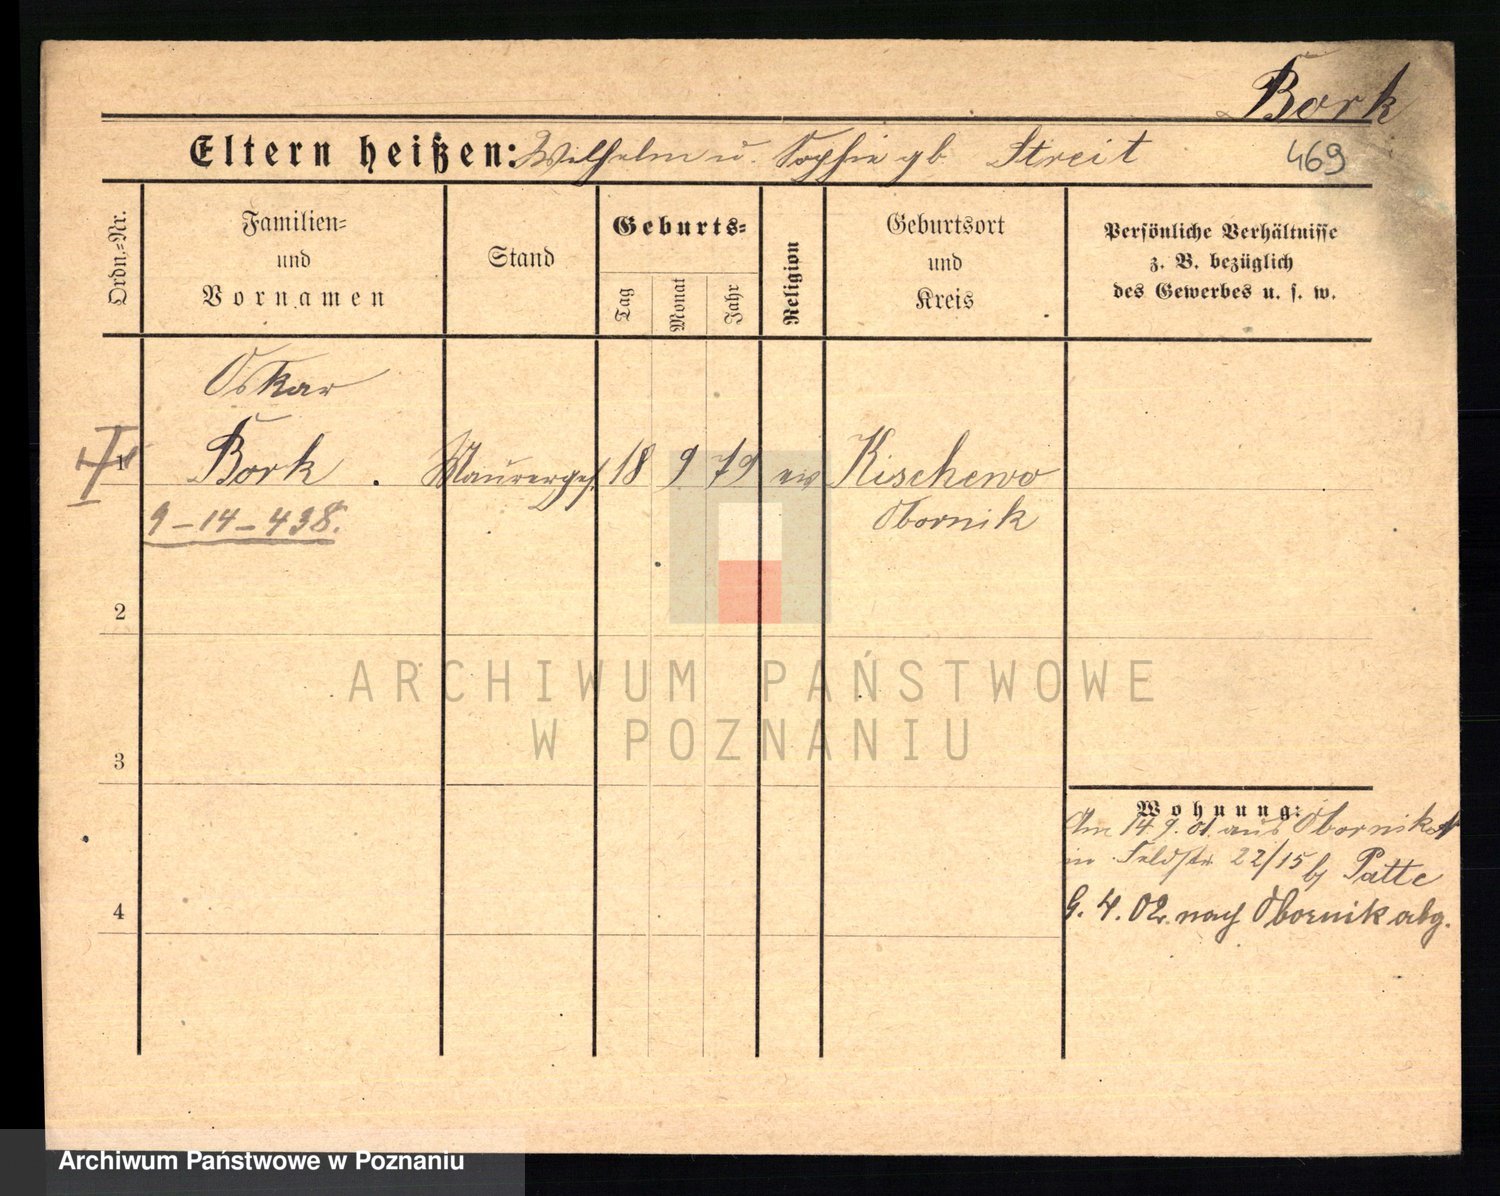 Bork
Eltern heißen: Wilhelm u. Sophie gb Streit
469
Ordn.-Nr.
Familien-
und
Vornamen
Stand
Geburts-
Tag
Monat
Jahr
Religion
Geburtsort
und
Kreis
Persönliche Verhältnisse
z. B. bezüglich
des Gewerbes u. s. w.
Oskar
1 Bork . Maurerges. 18 9 79 ev Kischewo
9-14-438. Obornik
2
3
4
Wohnung:
Am 14 9. 01. aus Obornik
in Feldstr. 22/15 b/ Patte
G. 4. 02. nach Obornik abg.
ARCHIWUM PAŃSTWOWE
W POZNANIU
Archiwum Państwowe w Poznaniu